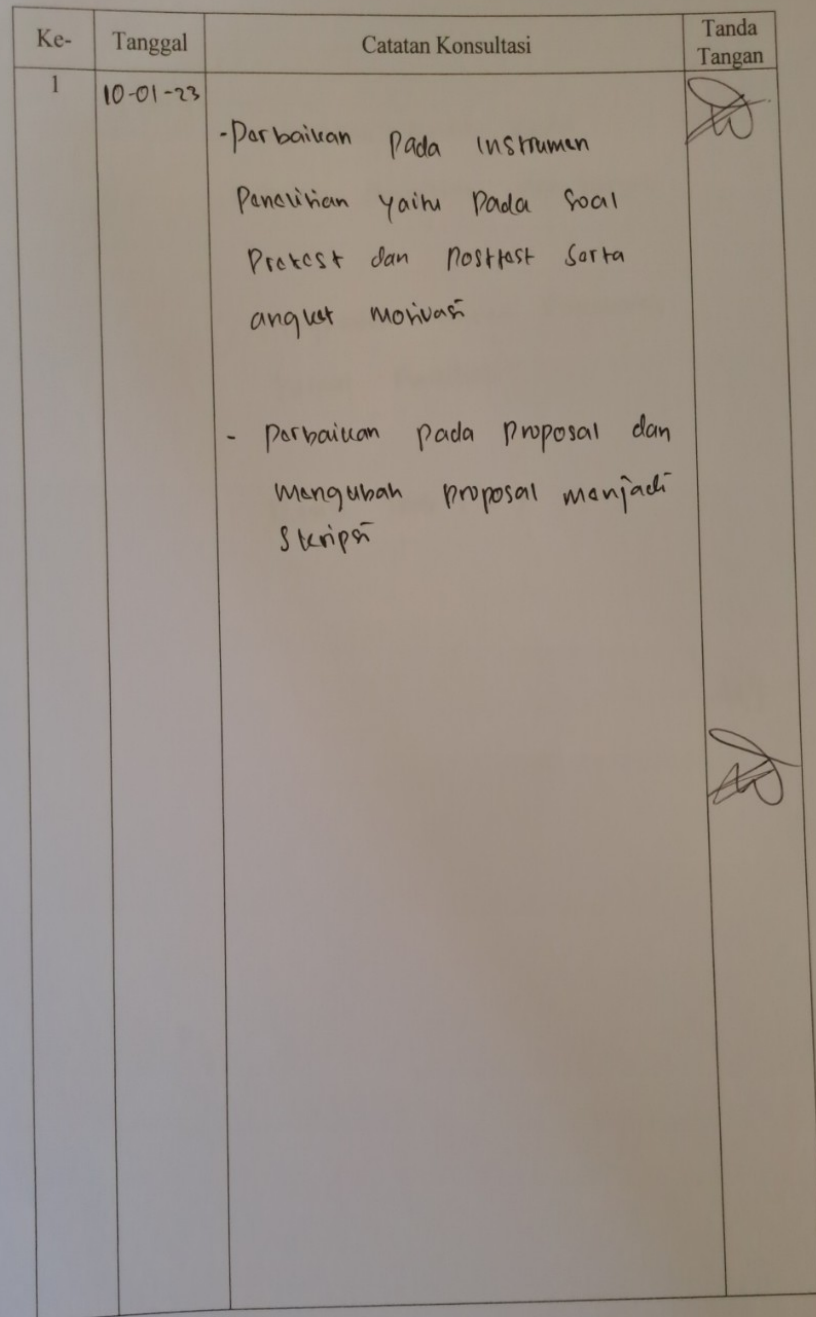 Ke- Tanggal Catatan Konsultasi Tanda Tangan
1 10-01-23
- Perbaikan pada instrumen
Penelitian yaitu pada soal
Pretest dan Posttest serta
angket motivasi
- Perbaikan pada proposal dan
mengubah proposal menjadi
Skripsi